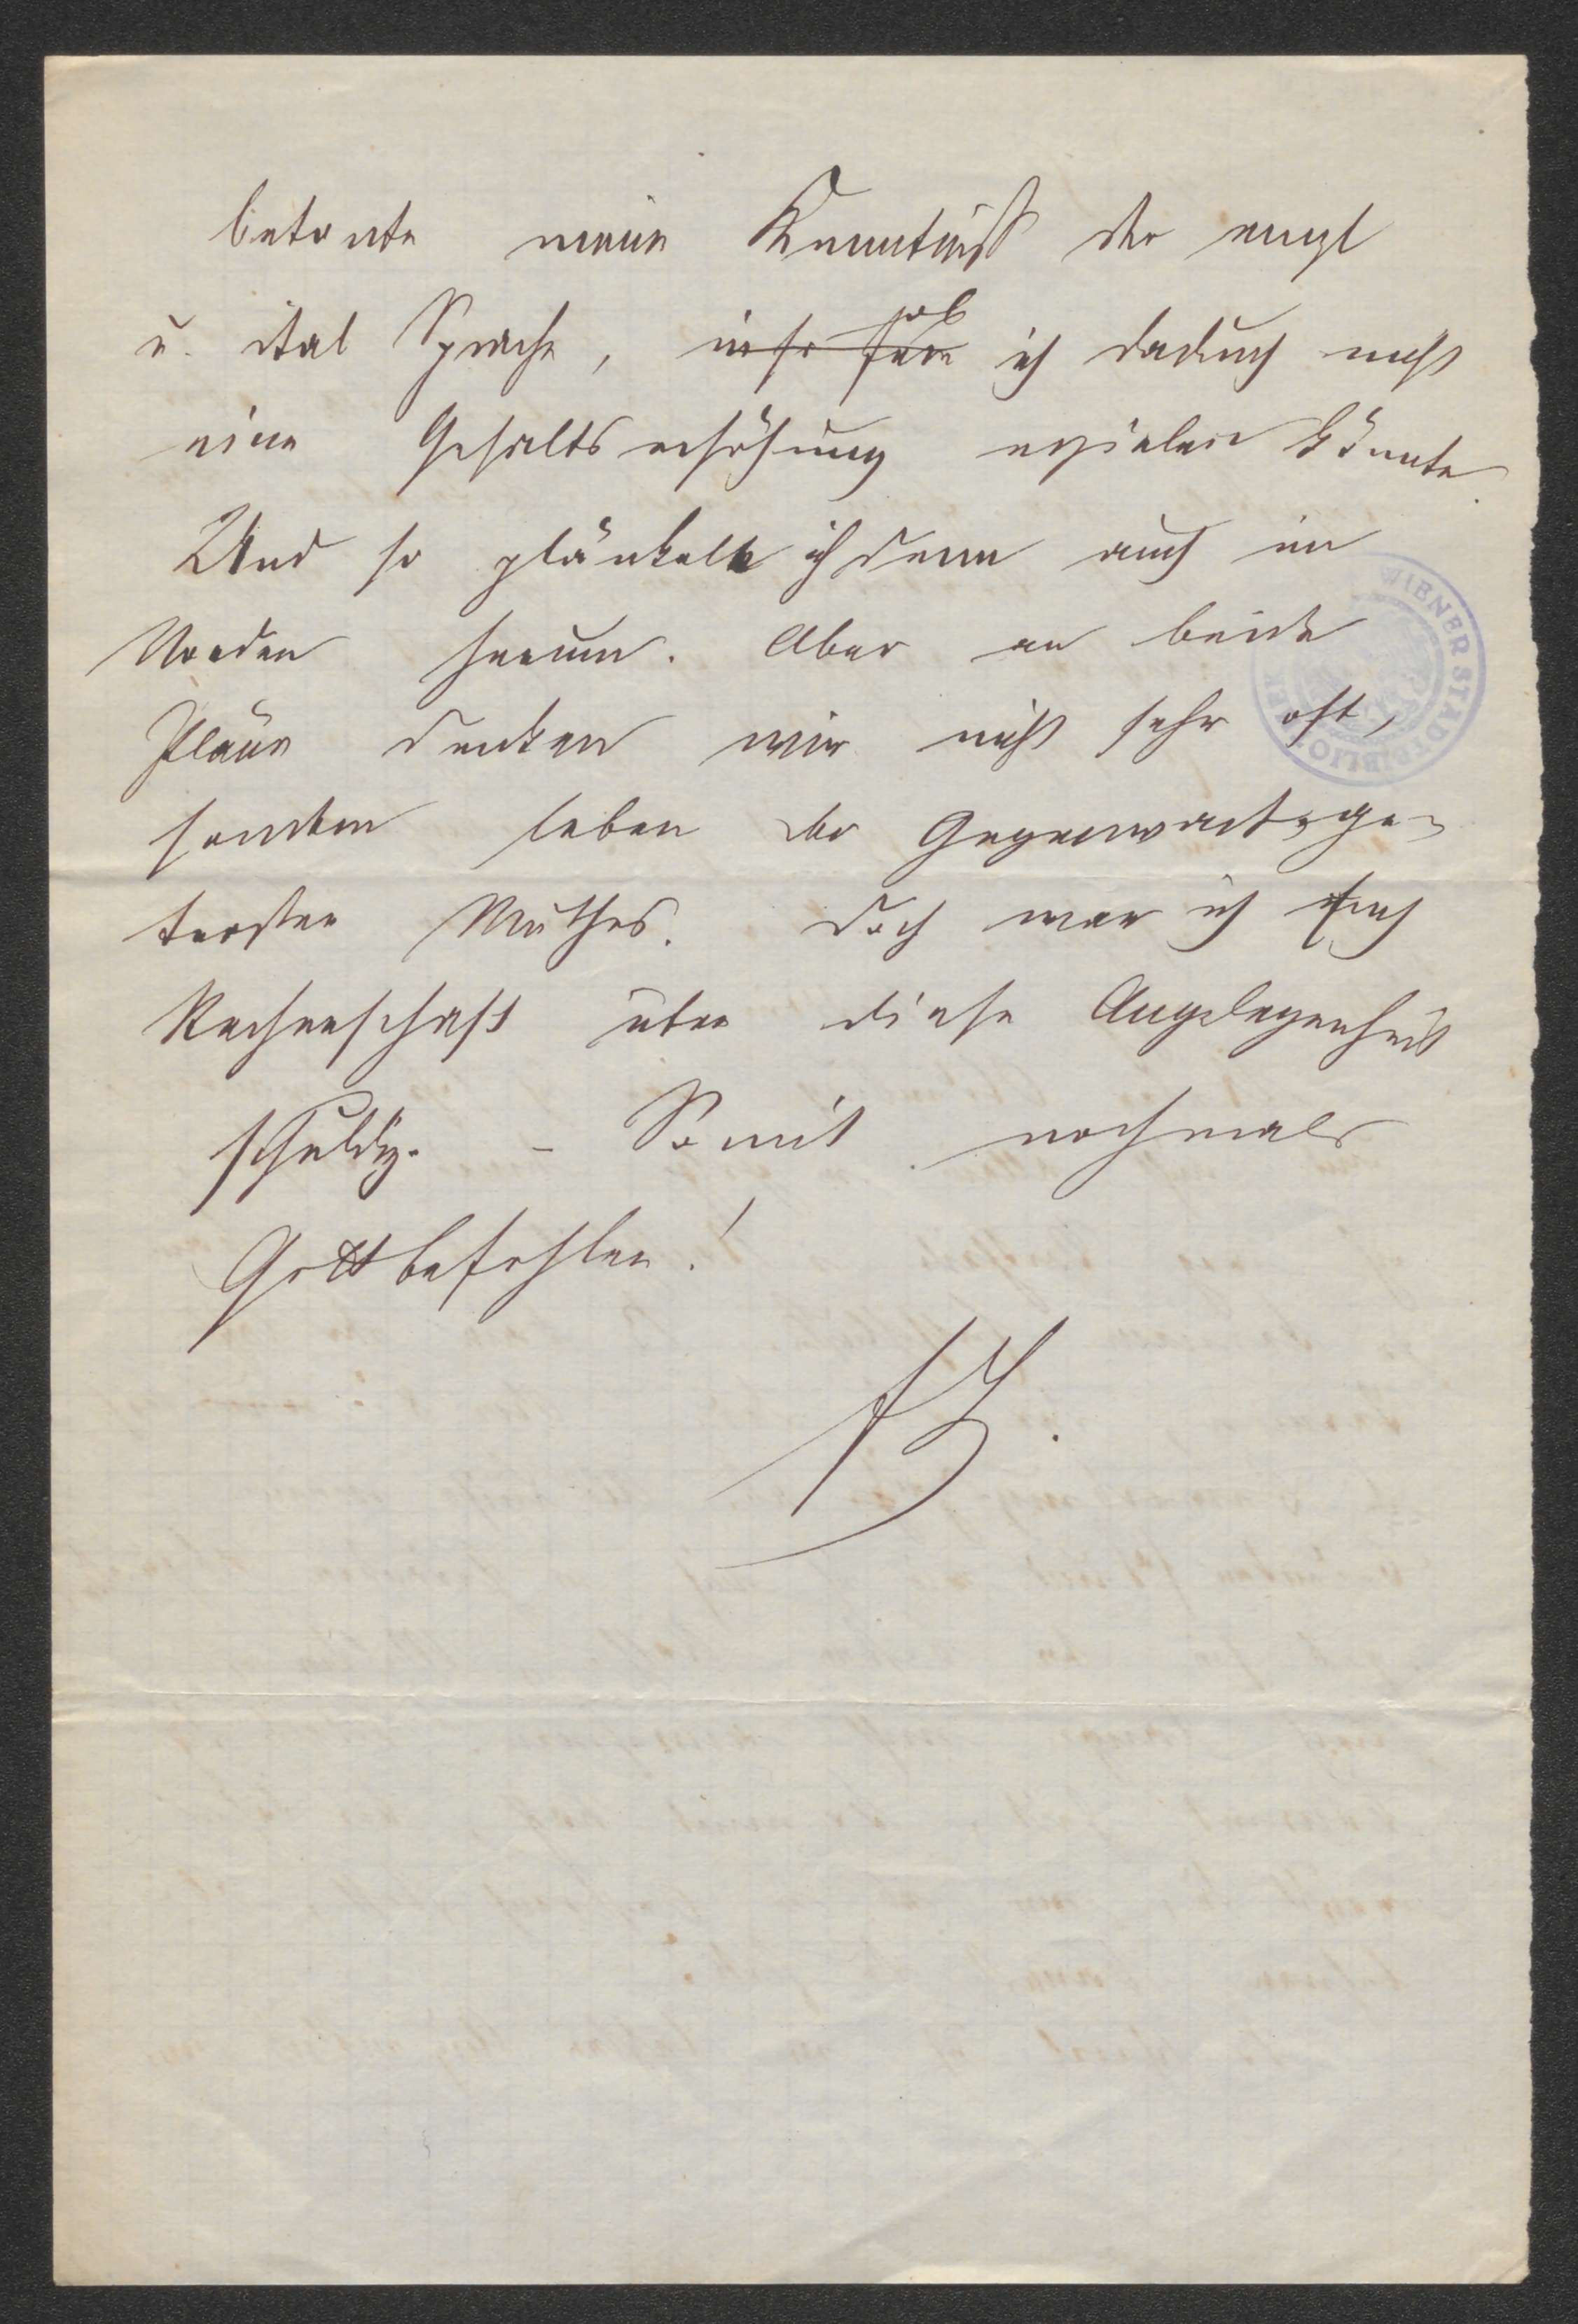 betonte meine Kenntniß der engl
u. ital Sprache, in so fern ob ich dadurch nicht
eine Gehaltserhöhung erzielen könnte.
Und so plänkele ich denn auch im
Norden herum. Aber an beide
Pläne denken wir nicht sehr oft,
sondern leben der Gegenwart, ge-
trosten Muthes. Doch war ich Euch
Rechenschaft über diese Angelegenheit
schuldig. – Somit nochmals
Gott befohlen!
WIENER STADTBIBLIOTHEK